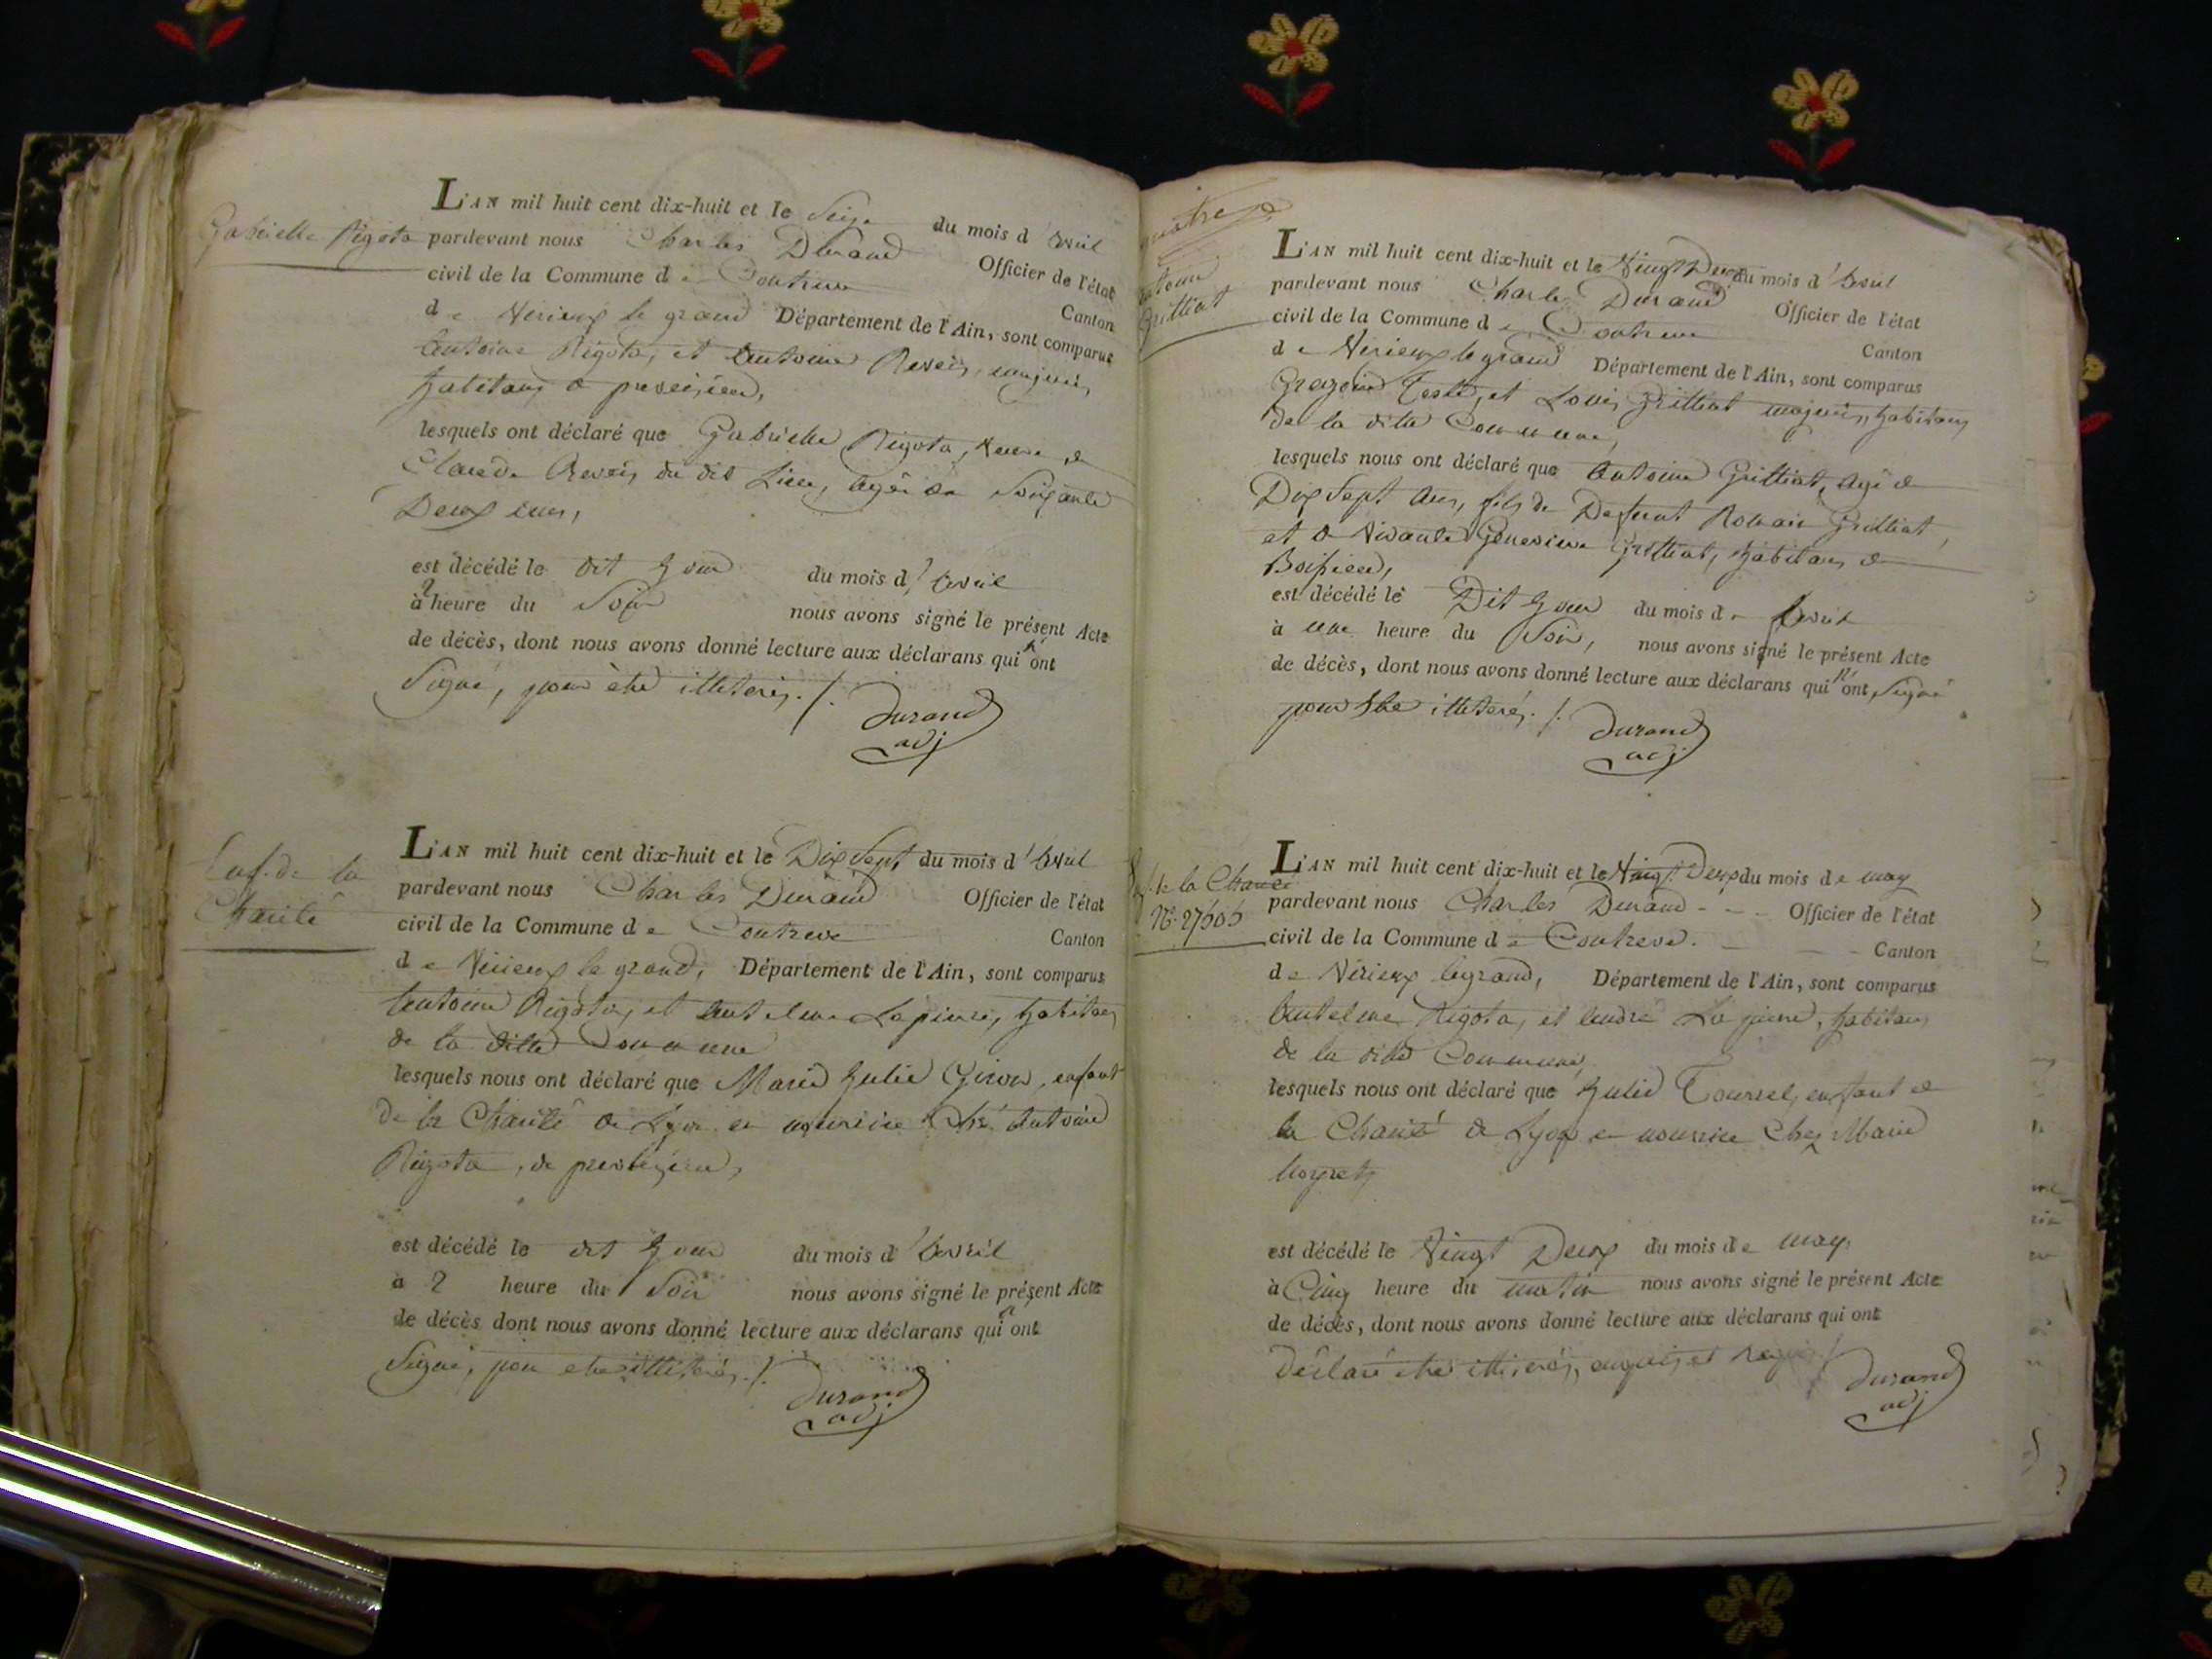 Gabrielle Rigota
L'AN mil huit cent dix-huit et le Seize du mois d'Avril
pardevant nous Charles Durand Officier de l'état
civil de la Commune de Contrevoz Canton
de Virieux le grand Département de l'Ain, sont comparus
Antoine Rigota, et Antoine Reveis, majeurs,
habitans
lesquels ont déclaré que Gabrielle Rigota, veuve de
Claude Reveis du dit Lieu, agée de Soixante
Deux ans,
est décédé le dit Jour du mois d'Avril
à 2 heure du Soir nous avons signé le présent Acte
de décès, dont nous avons donné lecture aux déclarans qui n'ont
Signé, pour être illeterés ./.
Durand
adj
Enf. de la
Charité
L'AN mil huit cent dix-huit et le Dix Sept du mois d'Avril
pardevant nous Charles Durand Officier de l'état
civil de la Commune de Contrevoz Canton
de Virieux le grand, Département de l'Ain, sont comparus
Antoine Rigota, et Antelme Lapierre, habitans
de la ditte Commune
lesquels nous ont déclaré que Marie Julie Giron, enfant
de la Charité de Lyon en nourrice Ché Antoine
Rigota, de
est décédé le dit Jour du mois d'Avril
à 2 heure du Soir nous avons signé le présent Acte
de décès dont nous avons donné lecture aux déclarans qui n'ont
Signé, pour etre illiterés ./.
Durand
adj
quatre
Antoine
Grilliat
L'AN mil huit cent dix-huit et le Vingt Deux du mois d'Avril
pardevant nous Charles Durand Officier de l'état
civil de la Commune de Contrevoz Canton
de Virieux le grand Département de l'Ain, sont comparus
Gregoire Teste, et Louis Grilliat majeurs, habitans
de la ditte Commune,
lesquels nous ont déclaré que Antoine Grilliat, agé de
Dix Sept Ans, fils de Defunt Romain Grilliat,
et de vivante Genevieve Grilliat, habitans de
est décédé le Dit Jour du mois d'Avril
à une heure du Soir, nous avons signé le présent Acte
de décès, dont nous avons donné lecture aux déclarans qui n'ont Signé
pour etre illeterés ./.
Durand
adj
Enf. de la Charité
N° 27505
L'AN mil huit cent dix-huit et le Vingt Deux du mois de may
pardevant nous Charles Durand - - - Officier de l'état
civil de la Commune de Contrevoz. Canton
de Virieux legrand, Département de l'Ain, sont comparus
Antelme Rigota, et André Lapierre, habitans
de la ditte Commune,
lesquels nous ont déclaré que Julie Tournel, enfant de
la Charité de Lyon en nourrice Chez Marie
est décédé le Vingt Deux du mois de may,
à Cinq heure du matin nous avons signé le présent Acte
de décès, dont nous avons donné lecture aux déclarans qui ont
Déclaré etre illiterés, enquis et requis ./.
Durand
adj